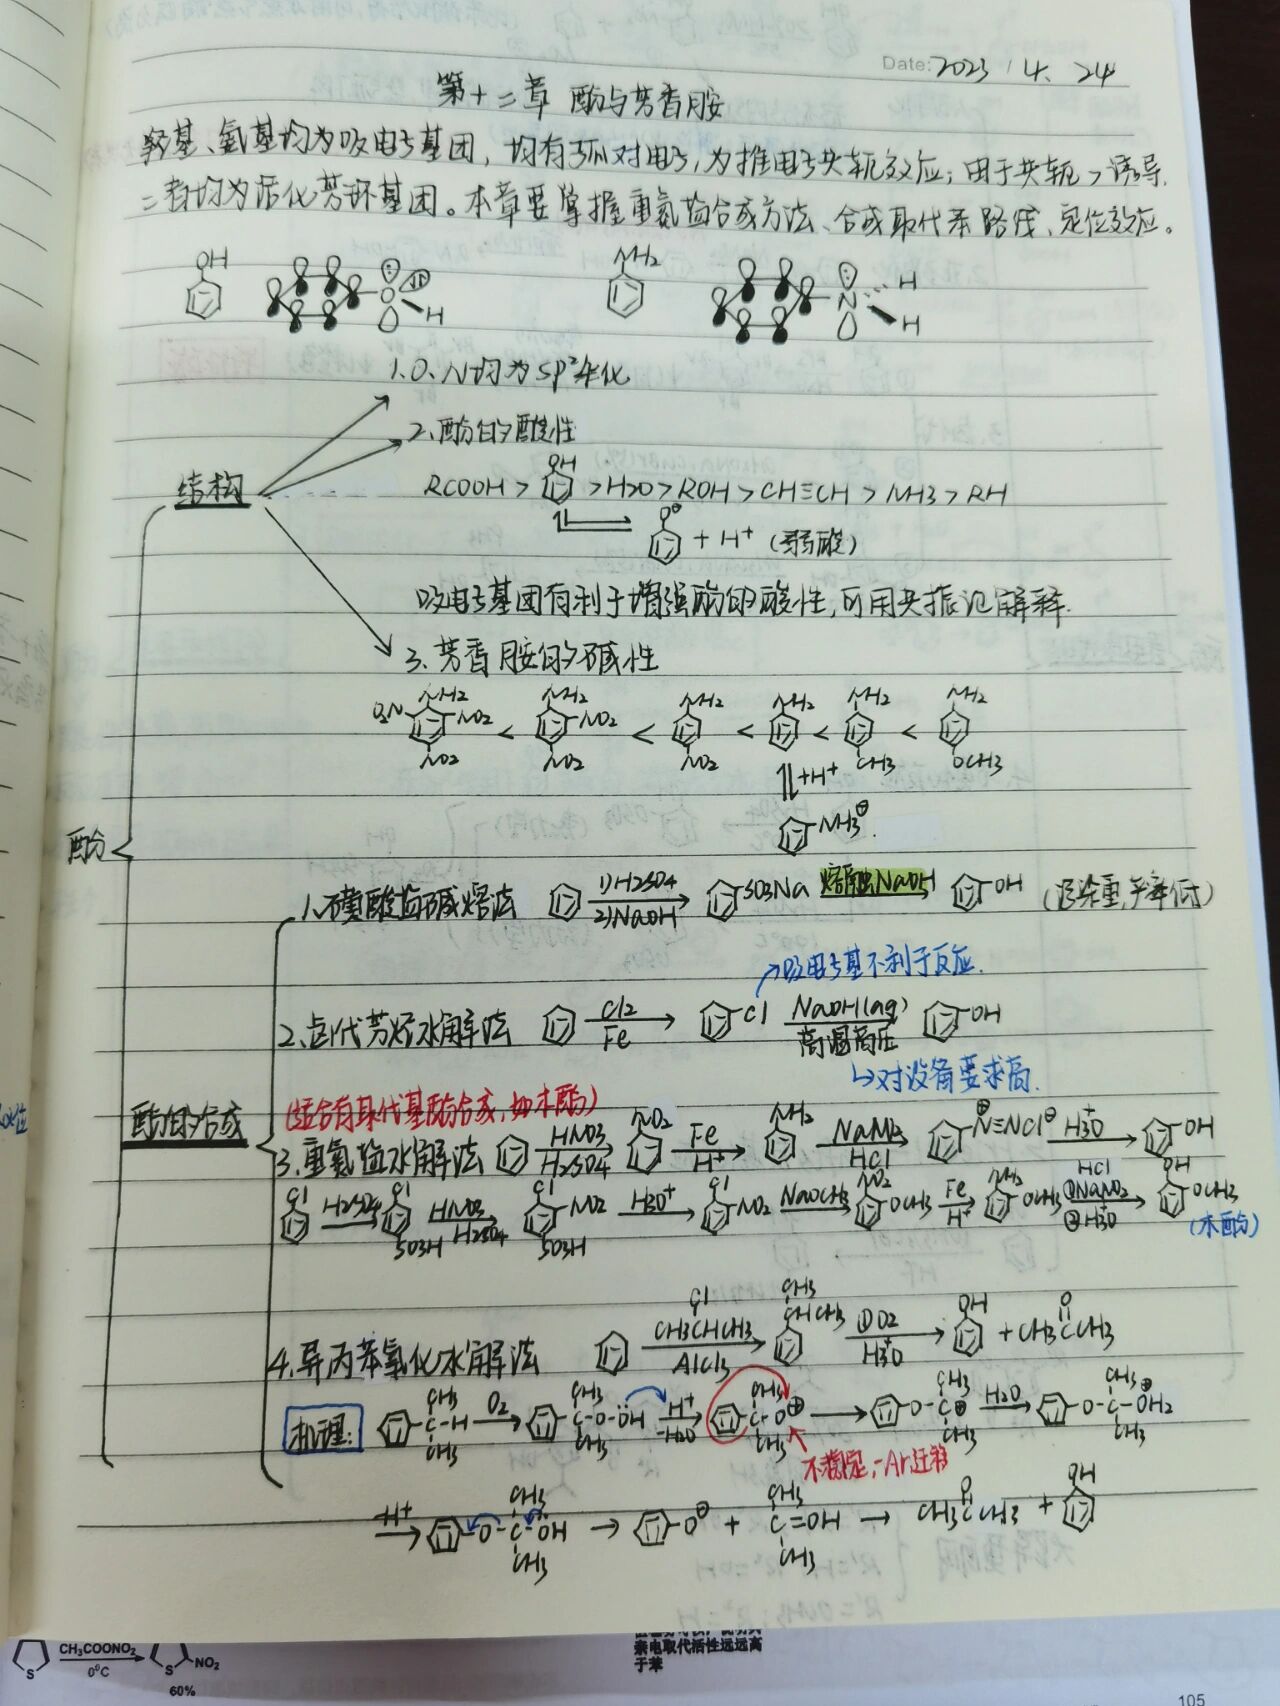 Date: 2023 / 4. 24
第十二章 酚与芳香胺
羟基、氨基均为吸电子基团，均有孤对电子，为推电子共轭效应；由于共轭>诱导.
二者均为活化苯环基团。本章要掌握重氮盐合成方法、合成取代苯路线、定位效应。
OH O H NH2 N H H
1.O、N均为sp²杂化
2.酚的酸性
结构
RCOOH > OH > H2O > ROH > CH≡CH > NH3 > RH
O⊖ + H⁺ (弱酸)
吸电子基团有利于增强酚的酸性，可用共振论解释.
3.芳香胺的碱性
O2N NH2 NO2 NO2 < NH2 NO2 NO2 < NH2 NO2 < NH2 < NH2 CH3 < NH2 OCH3
⇌ +H⁺
NH3
酚
1.磺酸盐碱熔法 1)H2SO4 2)NaOH → SO3Na 熔融NaOH → OH (污染重,产率低)
→吸电子基不利于反应.
2.卤代芳烃水解法 Cl2 Fe → Cl NaOH(aq) 高温高压 OH
↳对设备要求高.
酚的合成
(适合有取代基酚合成,如木酚)
3.重氮盐水解法 HNO3 H2SO4 → NO2 Fe H⁺ → NH2 NaNO2 HCl → N≡NCl⊖ H3⁺O → OH
Cl H2SO4 → Cl SO3H HNO3 H2SO4 → Cl NO2 SO3H H3O⁺ → Cl NO2 NaOCH3 → NO2 OCH3 Fe H⁺ → NH2 OCH3 HCl ①NaNO2 ②H3⁺O → OH OCH3
(木酚)
4.异丙苯氧化水解法 Cl CH3CHCH3 AlCl3 → CH3 CHCH3 ①O2 H3⁺O → OH + CH3CCH3 O
机理: CH3 C-H CH3 O2 → CH3 C-O-ÖH CH3 H⁺ -H2O → CH3 C-O⊕ CH3 → O-C⊕ CH3 CH3 H2O → O-C-OH2 CH3 CH3
不稳定,-Ar迁移
-H⁺ → O-C-ÖH CH3 CH3 → O⊖ + CH3 C=OH CH3 → CH3CCH3 O + OH
S CH₃COONO₂ 0⁰C S NO₂
60%
亲电取代活性远远高
于苯
105